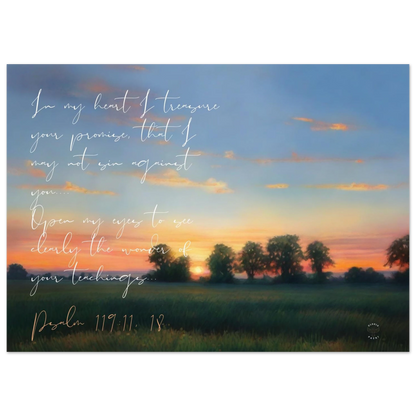 In my heart I treasure
your promise, that I
may not sin against
you...
Open my eyes to see
clearly the wonder of
your teachings...
Psalm 119:11. 18.